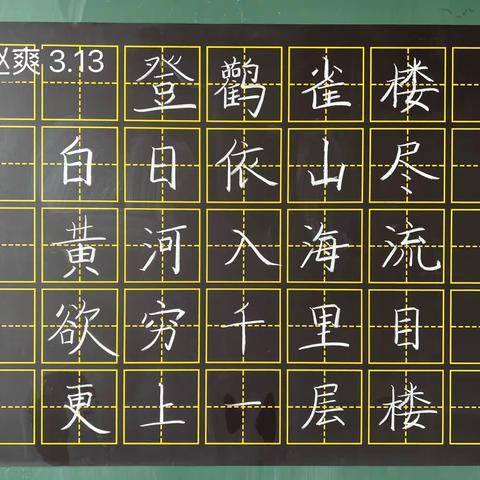 赵爽 3.13
登鹳雀楼
白日依山尽
黄河入海流
欲穷千里目
更上一层楼